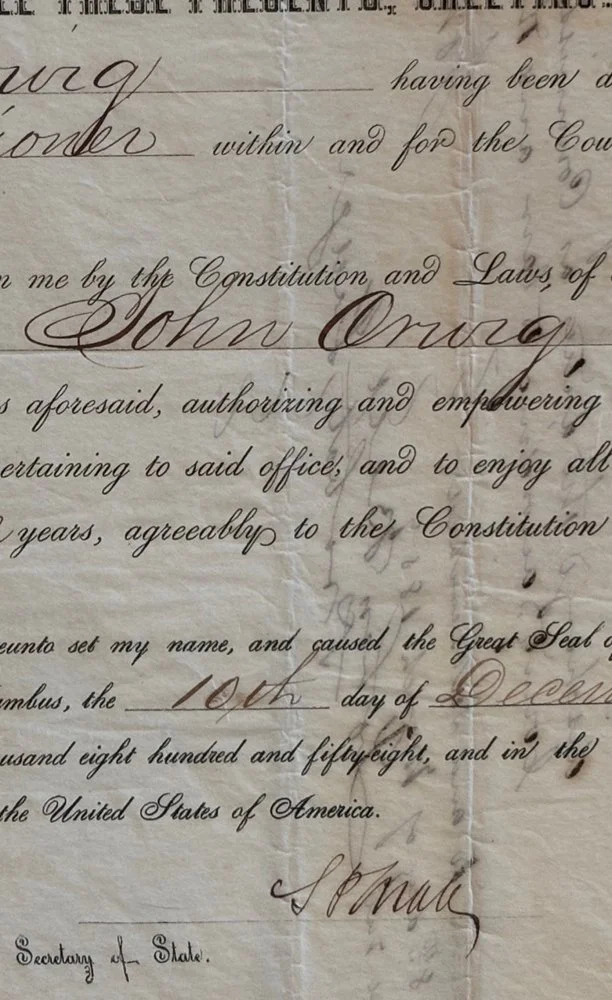 THESE PRESENTS, GREETING:
having been
within and for the Cou
n me by the Constitution and Laws, of
John Orwig
s aforesaid, authorizing and empowering
ertaining to said office, and to enjoy all
years, agreeably to the Constitution
eunto set my name, and caused the Great Seal o
umbus, the 10th day of Decem
usand eight hundred and fifty-eight, and in the
the United States of America.
Secretary of State.